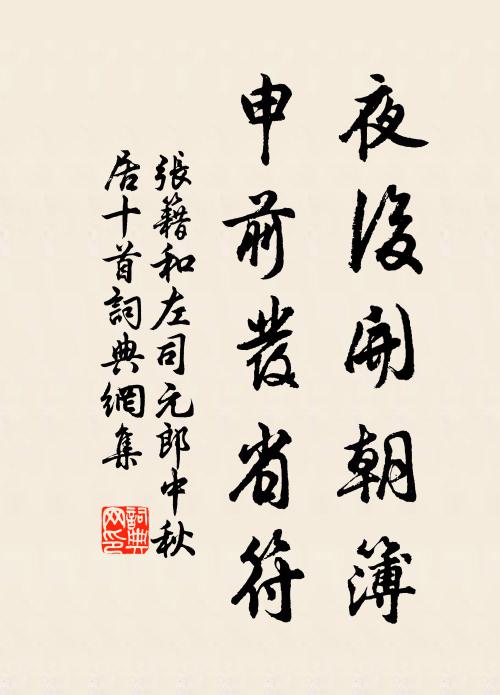 夜後開朝簿
申前發省符
張籍和左司元郎中秋
居十首詞典網集
詞典
网印